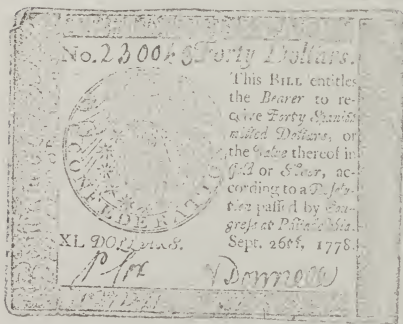 No. 23004 Forty Dollars.
CONFEDERATION
This BILL entitles
the Bearer to re-
ceive Forty Spanish
milled Dollars, or
the Value thereof in
Gold or Silver, ac-
cording to a Resolu-
tion passed by Con-
gress at Philadelphia
Sept. 26th, 1778.
XL DOLLARS.